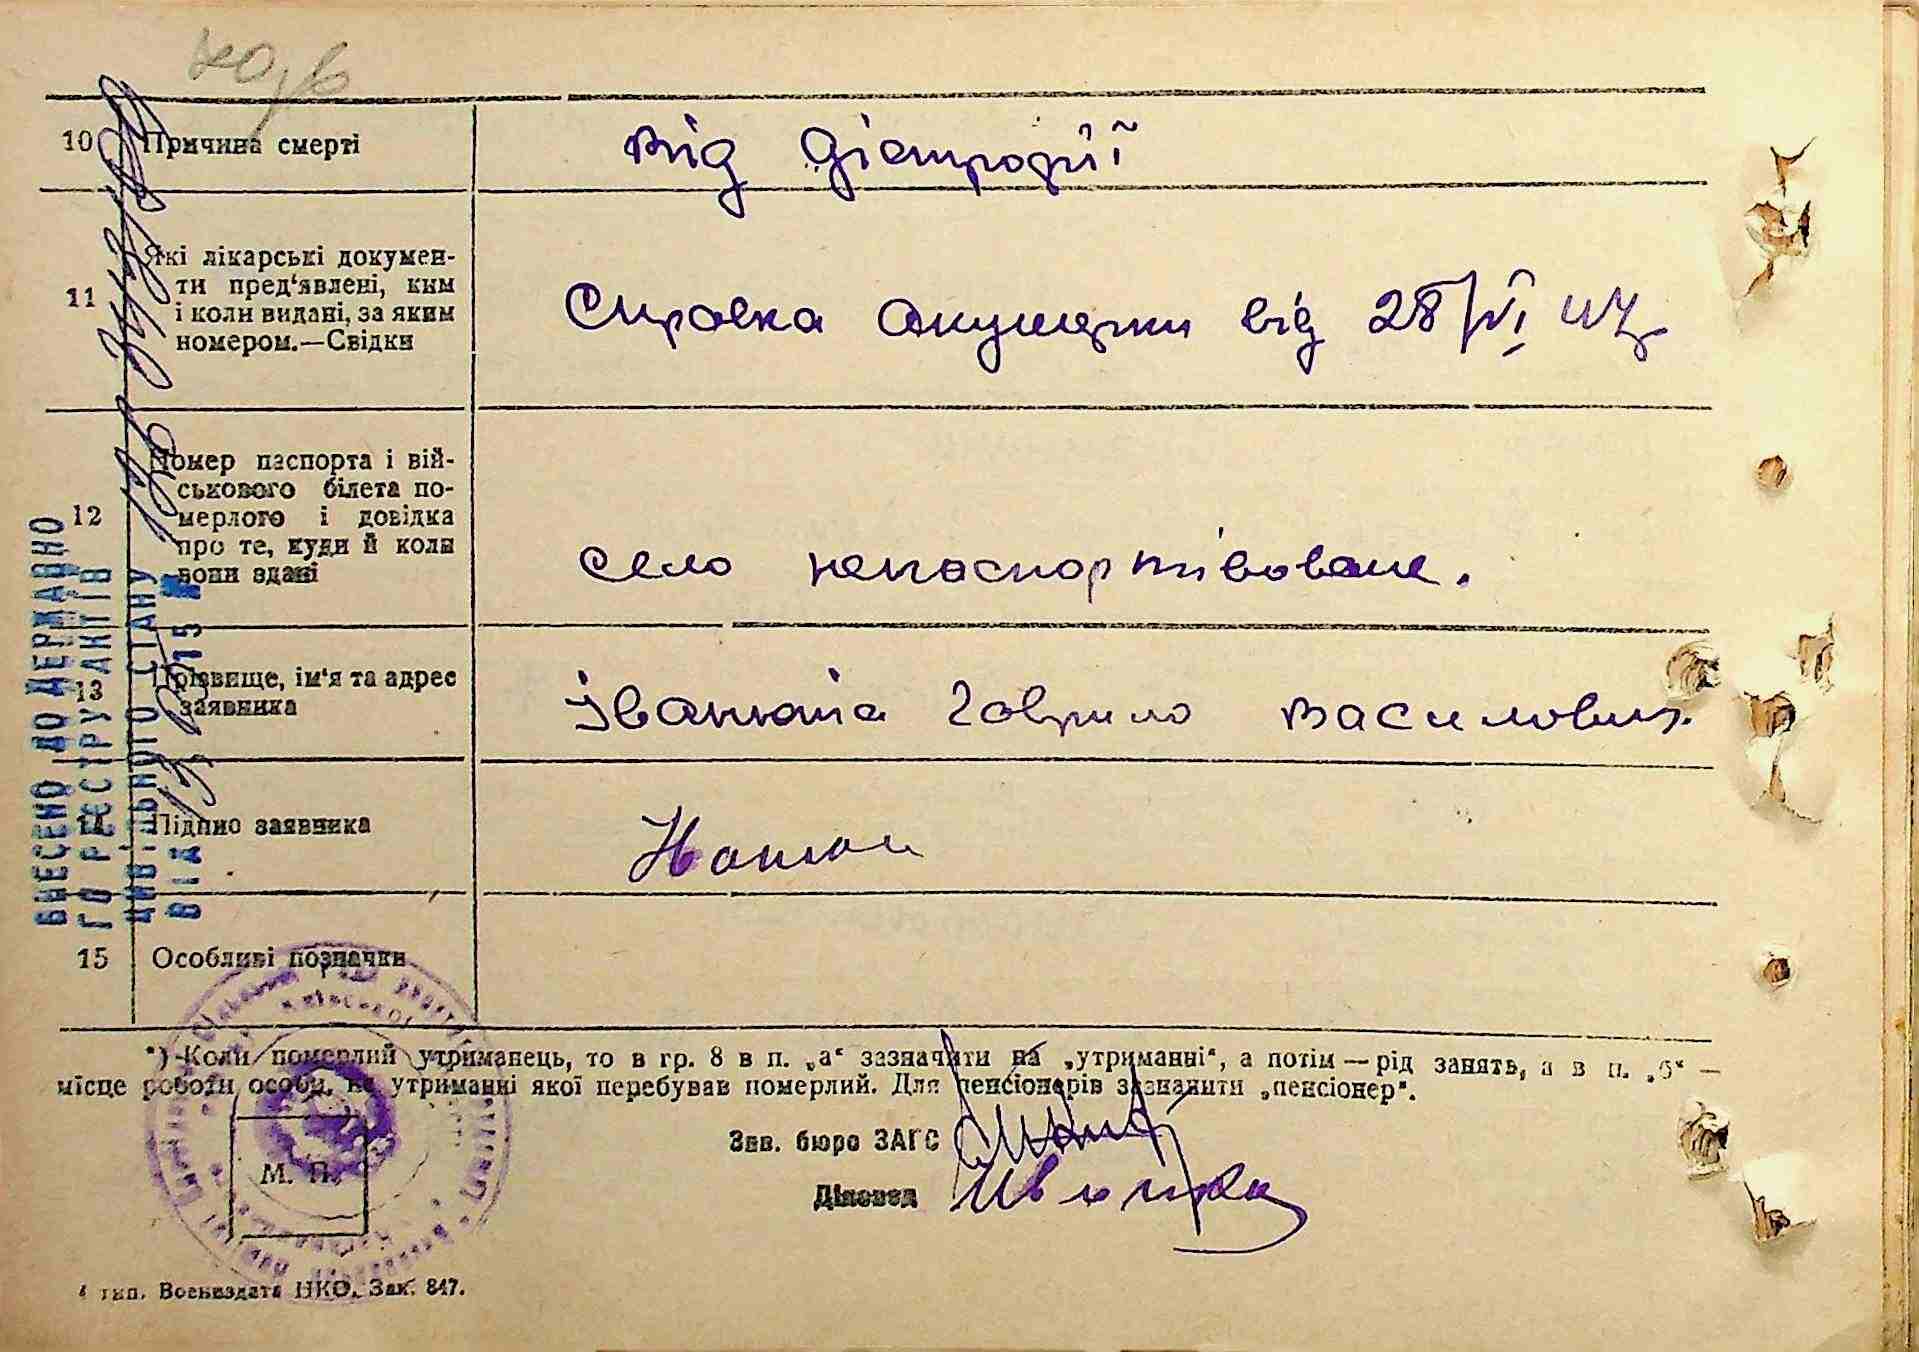 10 Причина смерті
від дістрофії
11 Які лікарські докумен-
ти пред'явлені, ким
і коли видані, за яким
номером.—Свідки
Справка акушерки від 28/VI 47
12 Номер паспорта і вій-
ськового білета по-
мерлого і довідка
про те, куди й коли
вони здані
село непаспортівоване.
13 Прізвище, ім'я та адрес
заявника
Гаврило Василович
14 Підпис заявника
15 Особливі позначки
*) Коли померлий утриманець, то в гр. 8 в п. „а“ зазначити на „утриманні“, а потім — рід занять, а в п. „б“ —
місце роботи особи, на утриманні якої перебував померлий. Для пенсіонерів зазначити „пенсіонер“.
Зав. бюро ЗАГС
Діловод
М. П.
4 тип. Воениздата НКО. Зак. 847.
ВНЕСЕНО ДО ДЕРЖАВНО
ГО РЕЄСТРУ АКТІВ
ЦИВІЛЬНОГО СТАНУ
ВІД